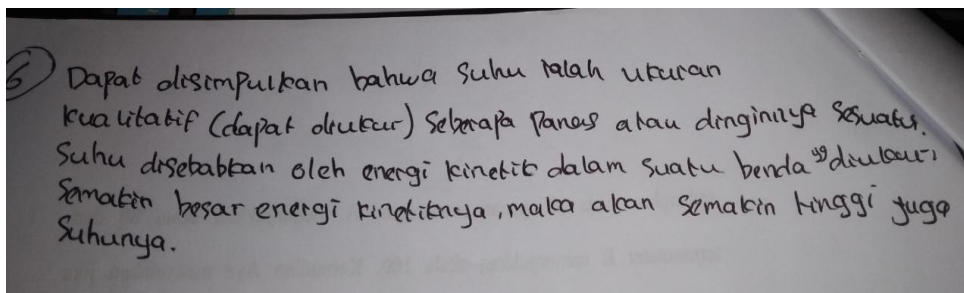 6 Dapat disimpulkan bahwa suhu ialah ukuran
kualitatif (dapat diukur) seberapa panas atau dinginnya sesuatu.
Suhu disebabkan oleh energi kinetik dalam suatu benda yg diukur,
Semakin besar energi kinetiknya, maka akan semakin tinggi juga
Suhunya.